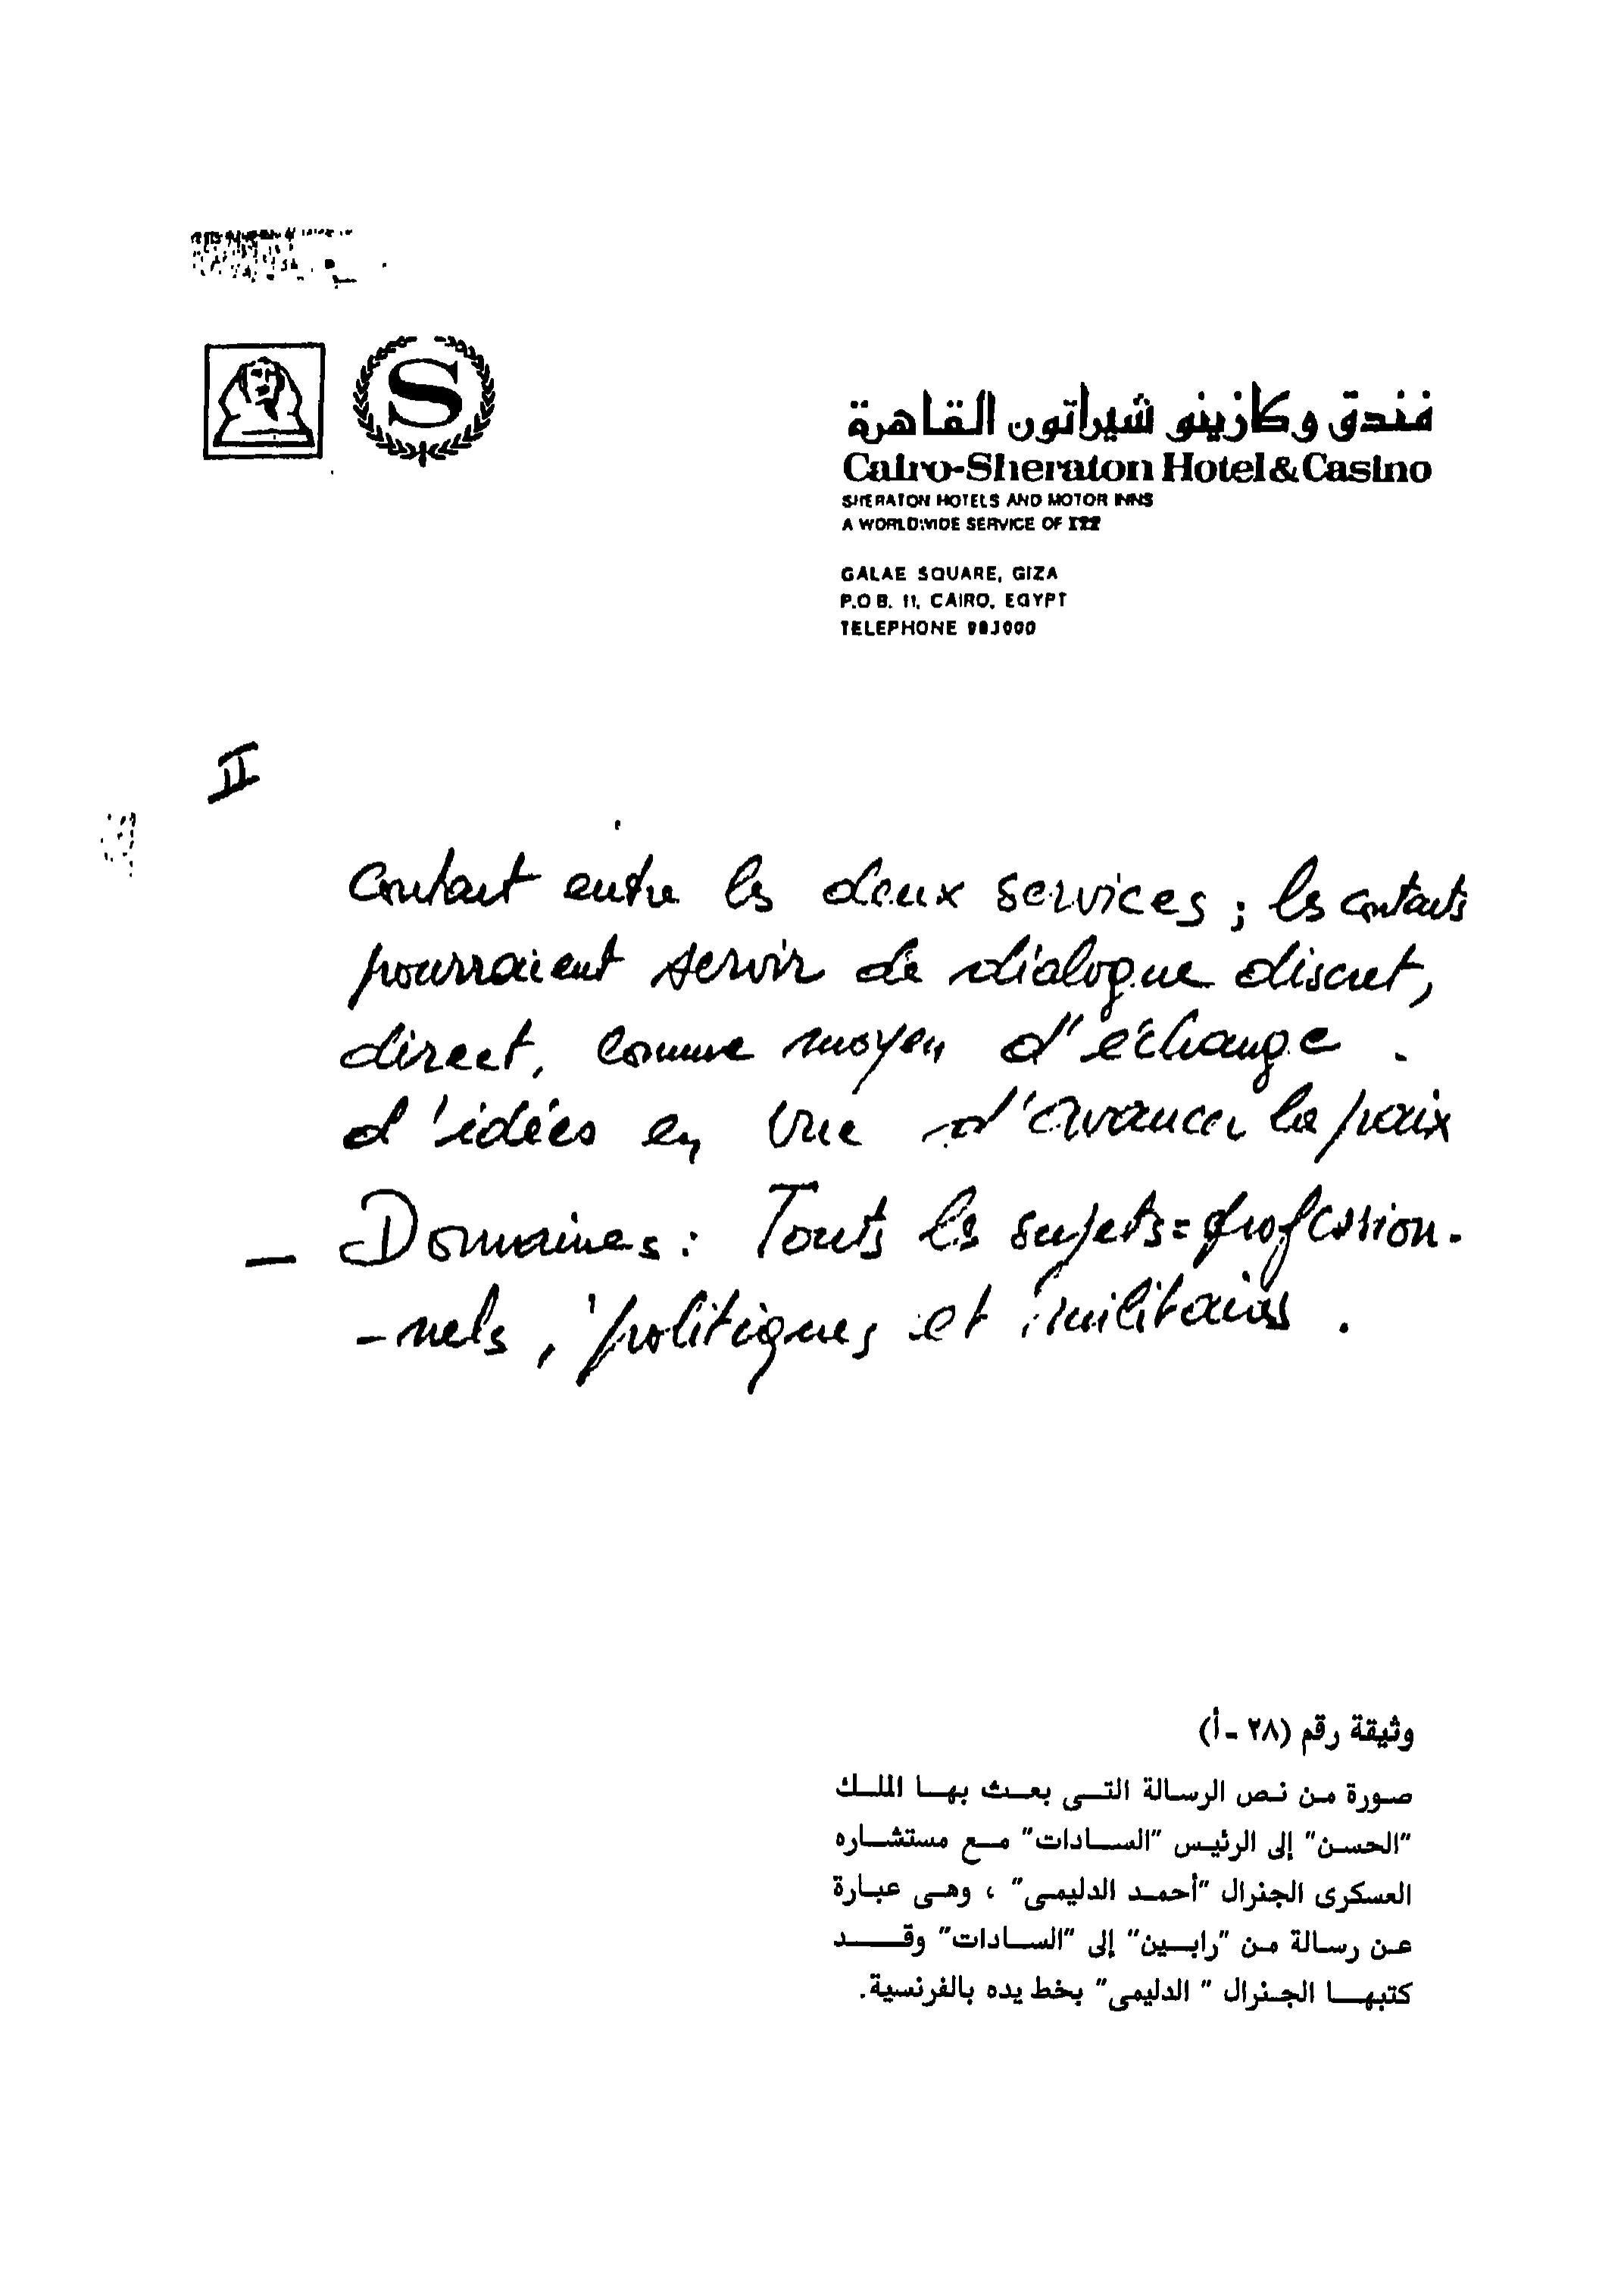 S
فندق وكازينو شيراتون القاهرة
Cairo-Sheraton Hotel & Casino
SHERATON HOTELS AND MOTOR INNS
A WORLDWIDE SERVICE OF ITT
GALAE SQUARE, GIZA
P.O B. 11, CAIRO, EGYPT
TELEPHONE 983000
II
Contact entre les deux services ; les contacts
pourraient servir de dialogue discret,
direct, comme moyen d'échange
d'idées en vue d'avancer la paix
— Domaines : Touts les sujets = profession-
-nels, politiques et militaires .
وثيقة رقم (٢٨ - أ)
صورة من نص الرسالة التى بعث بها الملك
"الحسن" إلى الرئيس "السادات" مع مستشاره
العسكرى الجنرال "أحمد الدليمى" ، وهى عبارة
عن رسالة من "رابين" إلى "السادات" وقد
كتبها الجنرال " الدليمى" بخط يده بالفرنسية.